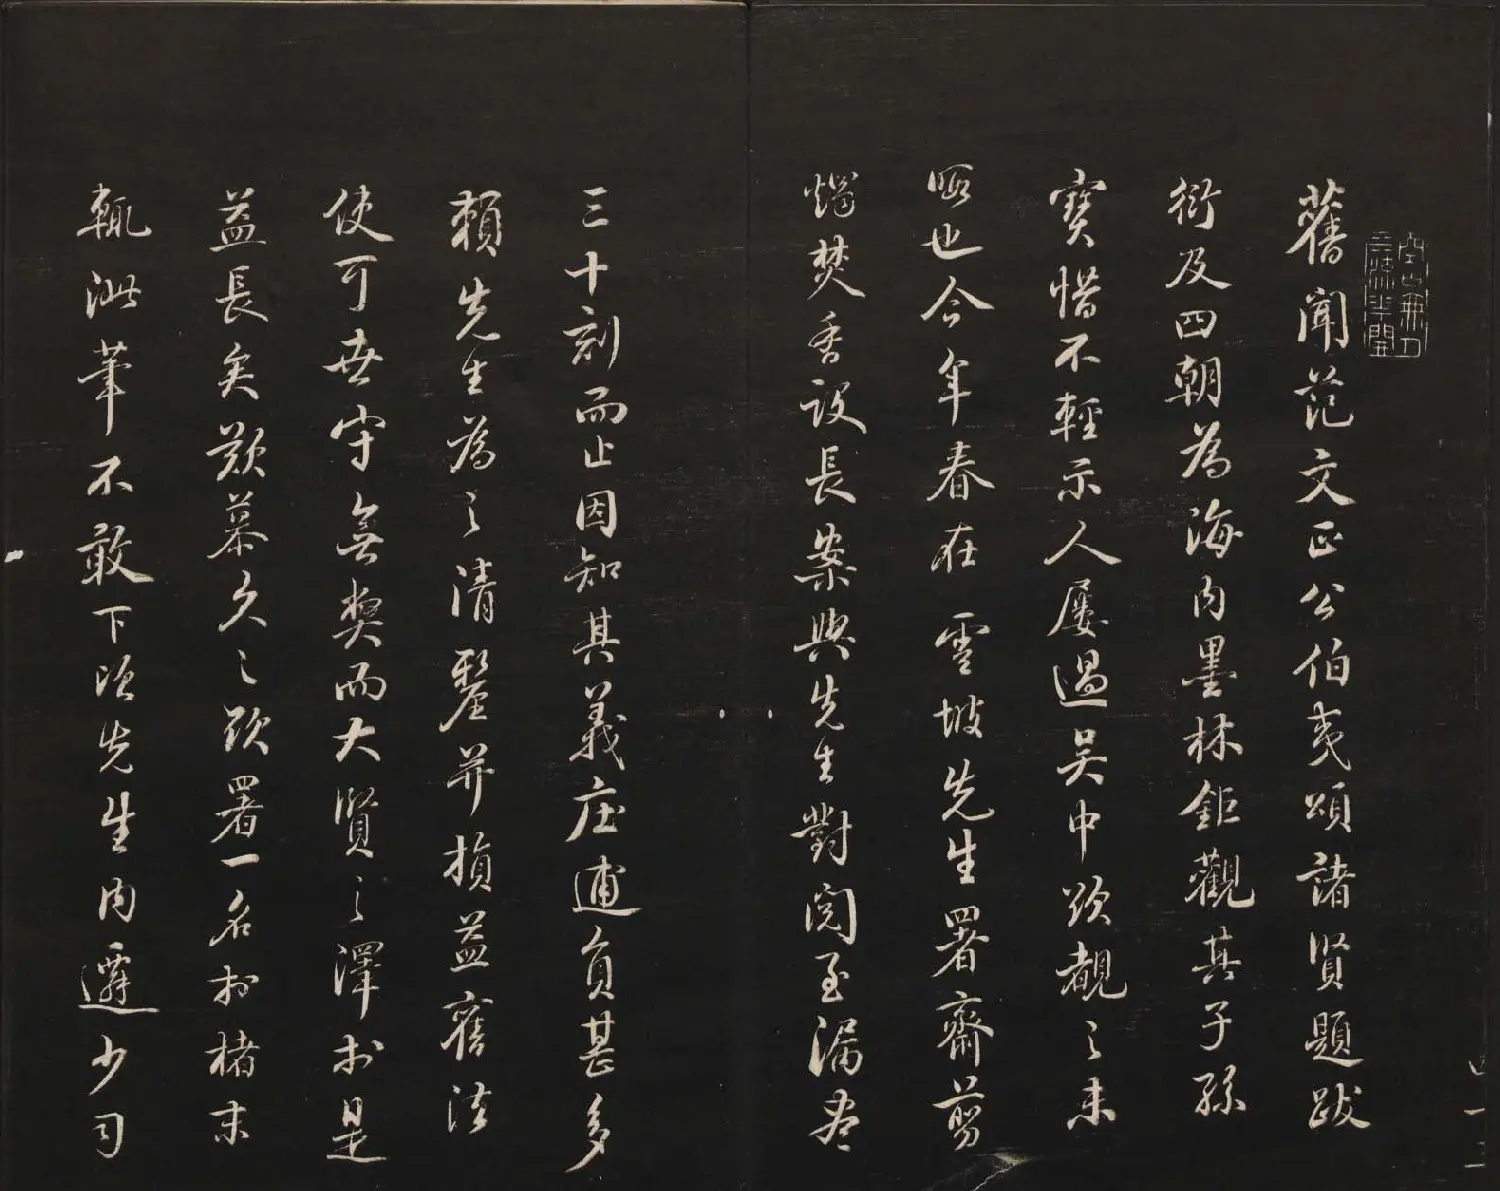 舊聞范文正公伯夷頌諸賢題跋
衍及四朝為海內墨林鉅觀其子孫
寶惜不輕示人屢過吳中欲覩之未
暇也今年春在雪坡先生署齋剪
燭焚香設長案與先生對閱至漏盡
三十刻而止因知其義庄逋負甚多
賴先生為之清釐并損益舊法
使可世守無弊而大賢之澤於是
益長矣歎慕久之欲署一名於楮末
輒泚筆不敢下後先生內遷少司